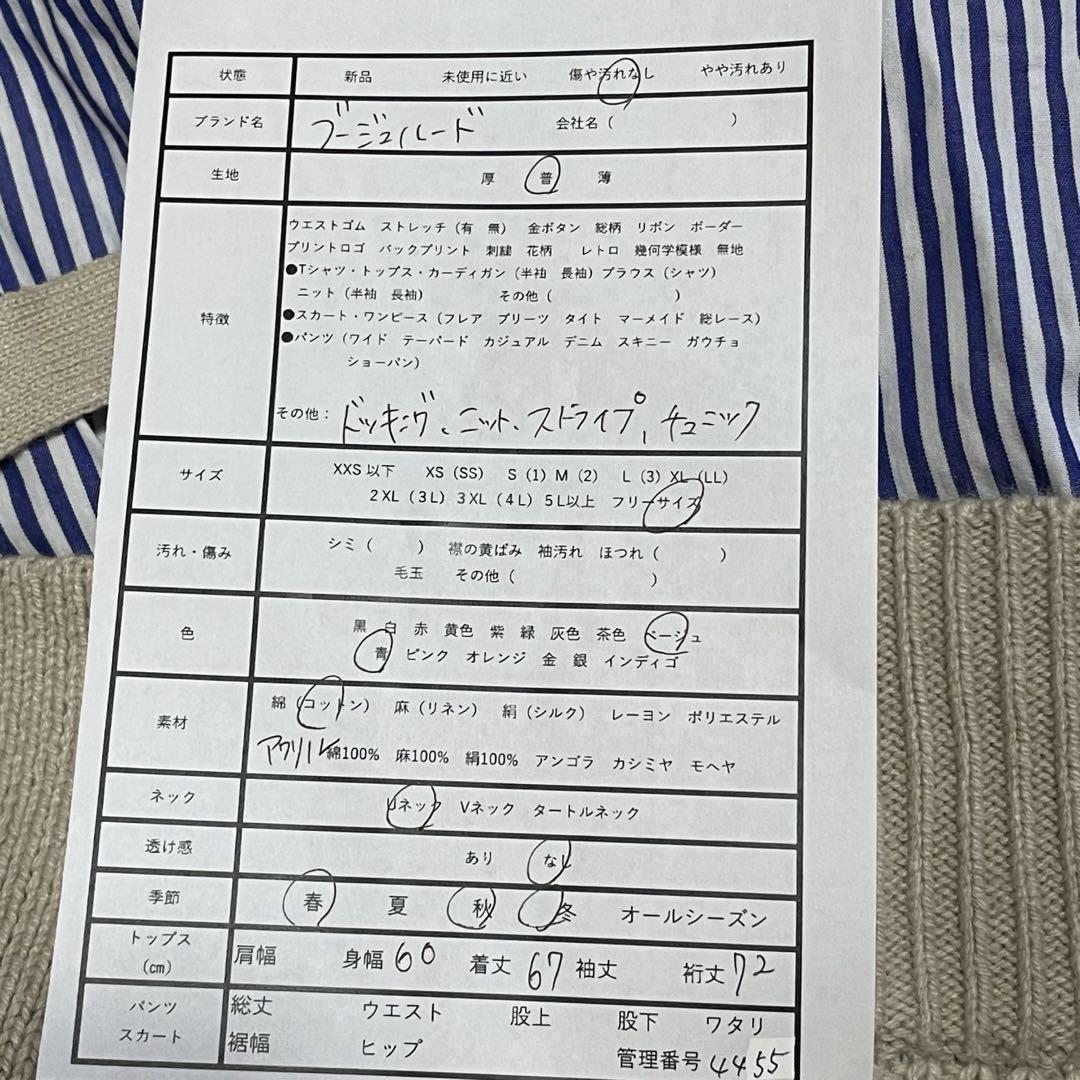 状態 新品 未使用に近い 傷や汚れなし やや汚れあり
ブランド名 ブージュルード 会社名（ ）
生地 厚 普 薄
特徴
ウエストゴム ストレッチ（有 無） 金ボタン 総柄 リボン ボーダー
プリントロゴ バックプリント 刺繍 花柄 レトロ 幾何学模様 無地
●Tシャツ・トップス・カーディガン（半袖 長袖）ブラウス（シャツ）
ニット（半袖 長袖） その他（ ）
●スカート・ワンピース（フレア プリーツ タイト マーメイド 総レース）
●パンツ（ワイド テーパード カジュアル デニム スキニー ガウチョ
ショーパン）
その他： ドッキング、ニット、ストライプ、チュニック
サイズ
XXS以下 XS（SS） S（1）M（2） L（3）XL（LL）
2XL（3L）3XL（4L）5L以上 フリーサイズ
汚れ・傷み
シミ（ ） 襟の黄ばみ 袖汚れ ほつれ（ ）
毛玉 その他（ ）
色
黒 白 赤 黄色 紫 緑 灰色 茶色 ベージュ
青 ピンク オレンジ 金 銀 インディゴ
素材
綿（コットン） 麻（リネン） 絹（シルク） レーヨン ポリエステル
アクリル 綿100% 麻100% 絹100% アンゴラ カシミヤ モヘヤ
ネック Uネック Vネック タートルネック
透け感 あり なし
季節 春 夏 秋 冬 オールシーズン
トップス
（cm）
肩幅 身幅 60 着丈 67 袖丈 裄丈 72
パンツ
スカート
総丈 ウエスト 股上 股下 ワタリ
裾幅 ヒップ 管理番号 4455